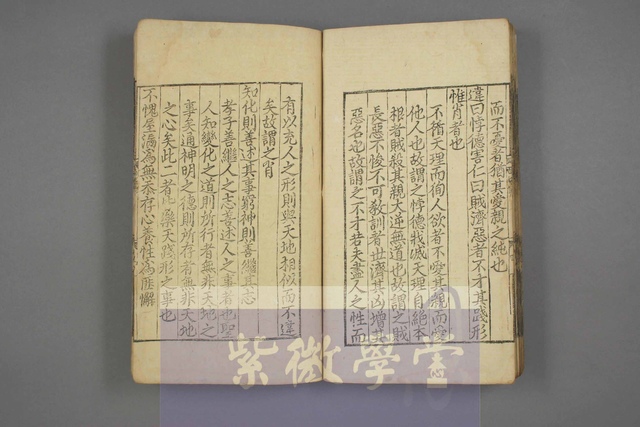 而不憂者猶其愛親之純也
違曰悖德害仁曰賊濟惡者不才其踐形
惟肖者也
不循天理而徇人欲者不愛其親而愛
他人也故謂之悖德戕滅天理自絶本
根者賊殺其親大逆無道也故謂之賊
長惡不悛不可教訓者世濟其凶增其
惡名也故謂之不才若夫盡人之性而
有以充人之形則與天地相似而不違
矣故謂之肖
知化則善述其事窮神則善繼其志
孝子善繼人之志善述人之事者也聖
人知變化之道則所行者無非天地之
事矣通神明之德則所存者無非天地
之心矣此二者皆樂天踐形之事也
不愧屋漏為無忝存心養性為匪懈
紫微學堂